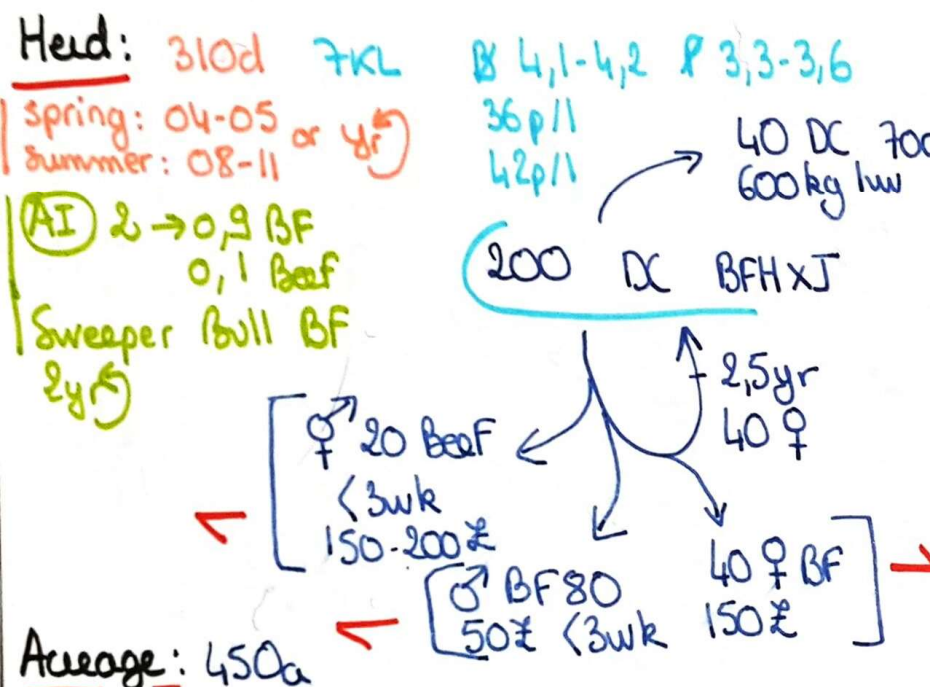 Herd: 310d 7KL B 4,1-4,2 P 3,3-3,6
spring: 04-05 or yr
summer: 08-11
36p/l
42p/l
40 DC 700
600kg lw
AI 2 → 0,9 BF
0,1 Beef
Sweeper Bull BF
2yr
200 DC BFH x J
2,5yr
40 ♀
⚥ 20 Beef
<3wk
150-200£
♂ BF 80
50£ <3wk
40 ♀ BF
150£
Acreage: 450a